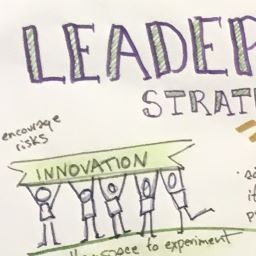 LEADEP
STRAT
encourage
risks
INNOVATION
space to experiment